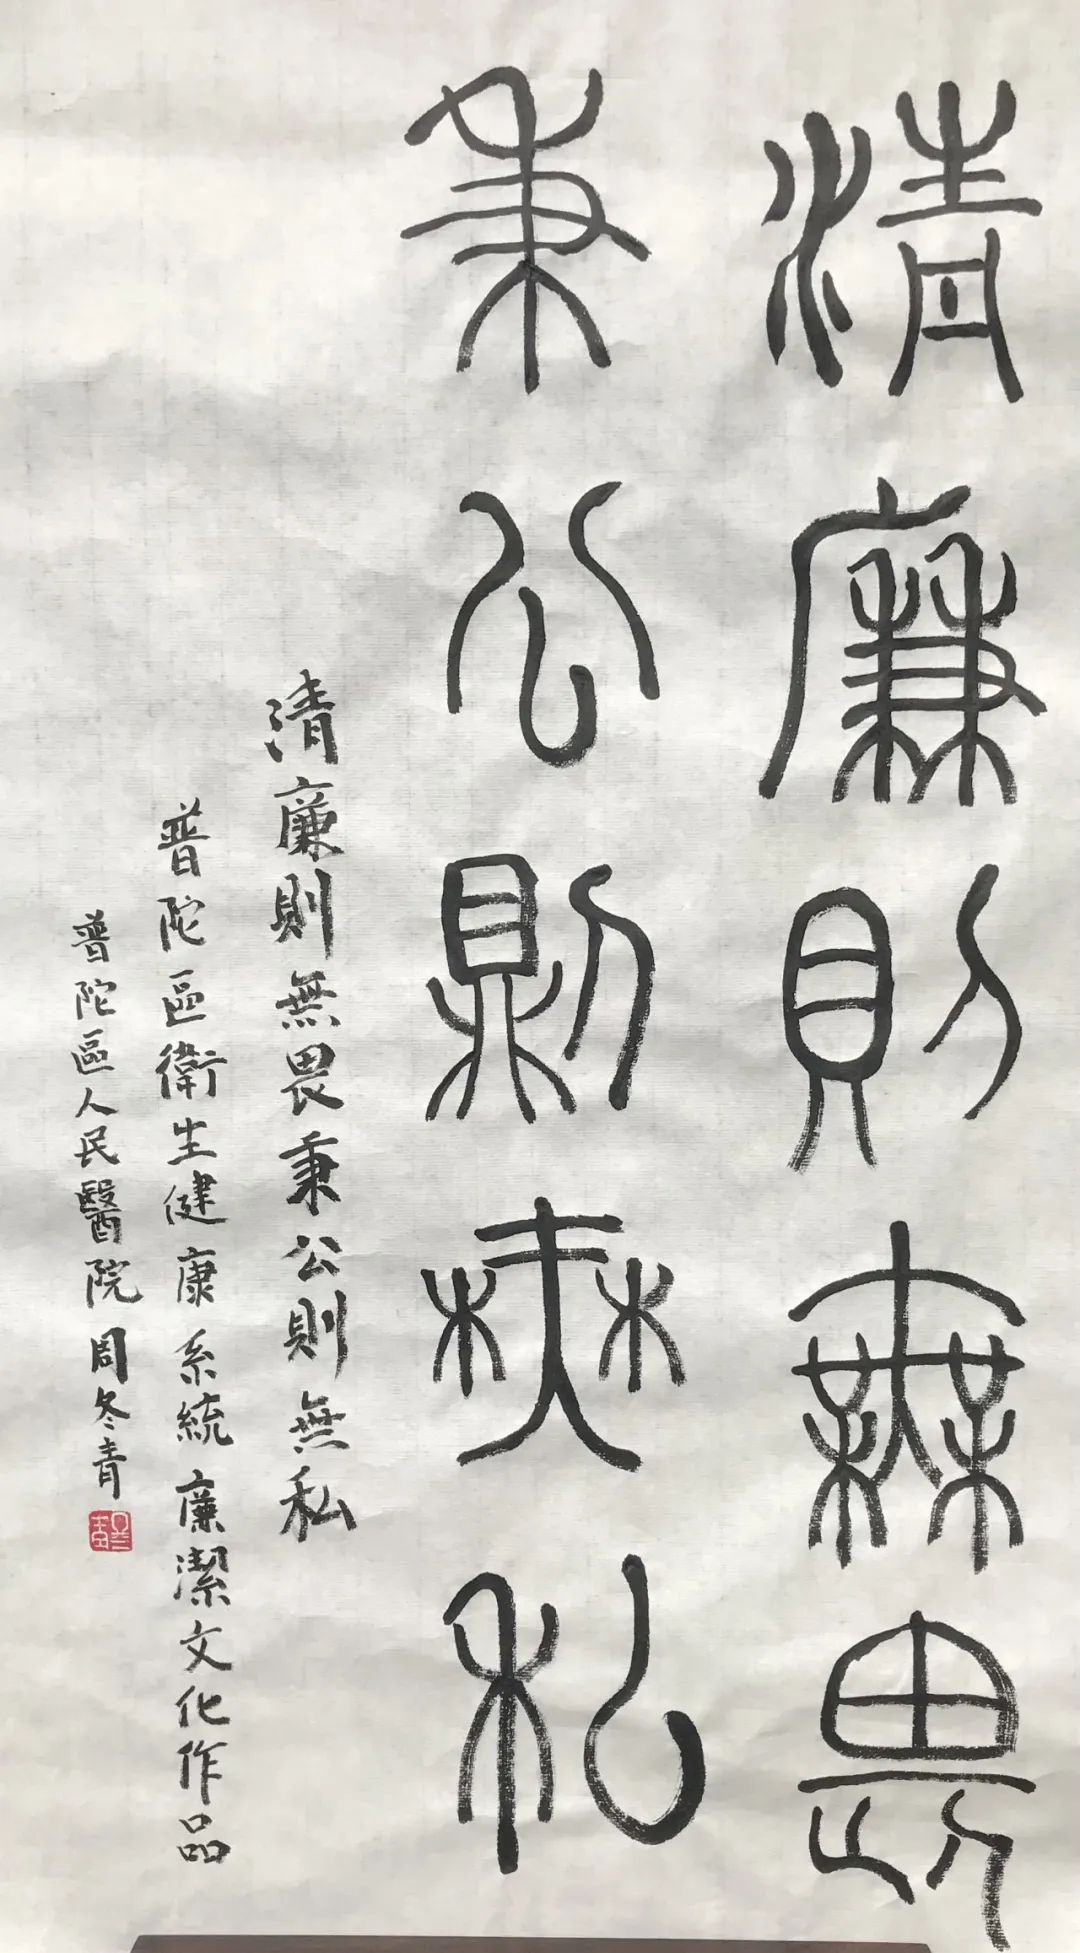 清廉則無畏
秉公則無私
清廉則無畏秉公則無私
普陀區衛生健康系統廉潔文化作品
普陀區人民醫院周冬青